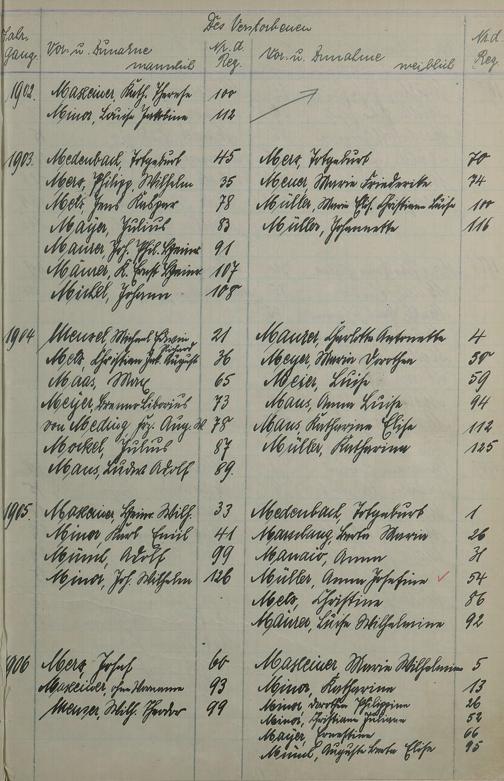 Des Verstorbenen
Jahr. Gang. Vor. u. Zunahme männlich Nr. d. Reg. Vor. u. Zunahme weiblich Nr. d. Reg.
1902. Maxeiner, Kath. Therese 100
Minor, Louise Jakobine 112
1903. Medenbach, Totgeburt 45 Merz, Totgeburt 70
Merz, Philipp Wilhelm 35 Meuer, Marie Friederike 74
Metz, Jens Kaspar 78 Müller, Marie Elis. Christiane Luise 100
Mayer, Julius 83 Müller, Johannette 116
Maurer Joh. Phil. Heinr 91
Mäurer, K. Ernst Heinr 107
Michel, Johann 108
1904 Menzel, Edwin 21 Maurer, Charlotte Antonette 4
Metz, Christian August 36 Meyer, Maria Dorothea 50
Maas, Marx 65 Meier, Luise 59
Meijer, Liborius 73 Maus, Anna Luise 94
von Meding, Aug. 78 Maus Katharine Elise 112
Mockel, Julius 87 Müller, Katharina 125
Maus, Ludw. Adolf 89.
1905. Maxeiner Heinr. Wilh. 33 Medenbach, Totgeburt 1
Minor Karl Emil 41 Berta Maria 26
Adolf 99 Anna 31
Minor, Joh. Wilhelm 126 Müller, Anna Josefine 54
Metz, Christine 86
Mäurer, Luise Wilhelmine 92
1906 Merz, Josef 60 Maxeiner Marie Wilhelmine 5
Maxeiner, ohne Vorname 93 Minor, Katharine 13
Menzer, Wilh. Theodor 99 Minor, Dorothea Philippine 26
Minor, Christiane Juliane 52
Mayer, Ernestine 66
Auguste Berta Elise 95